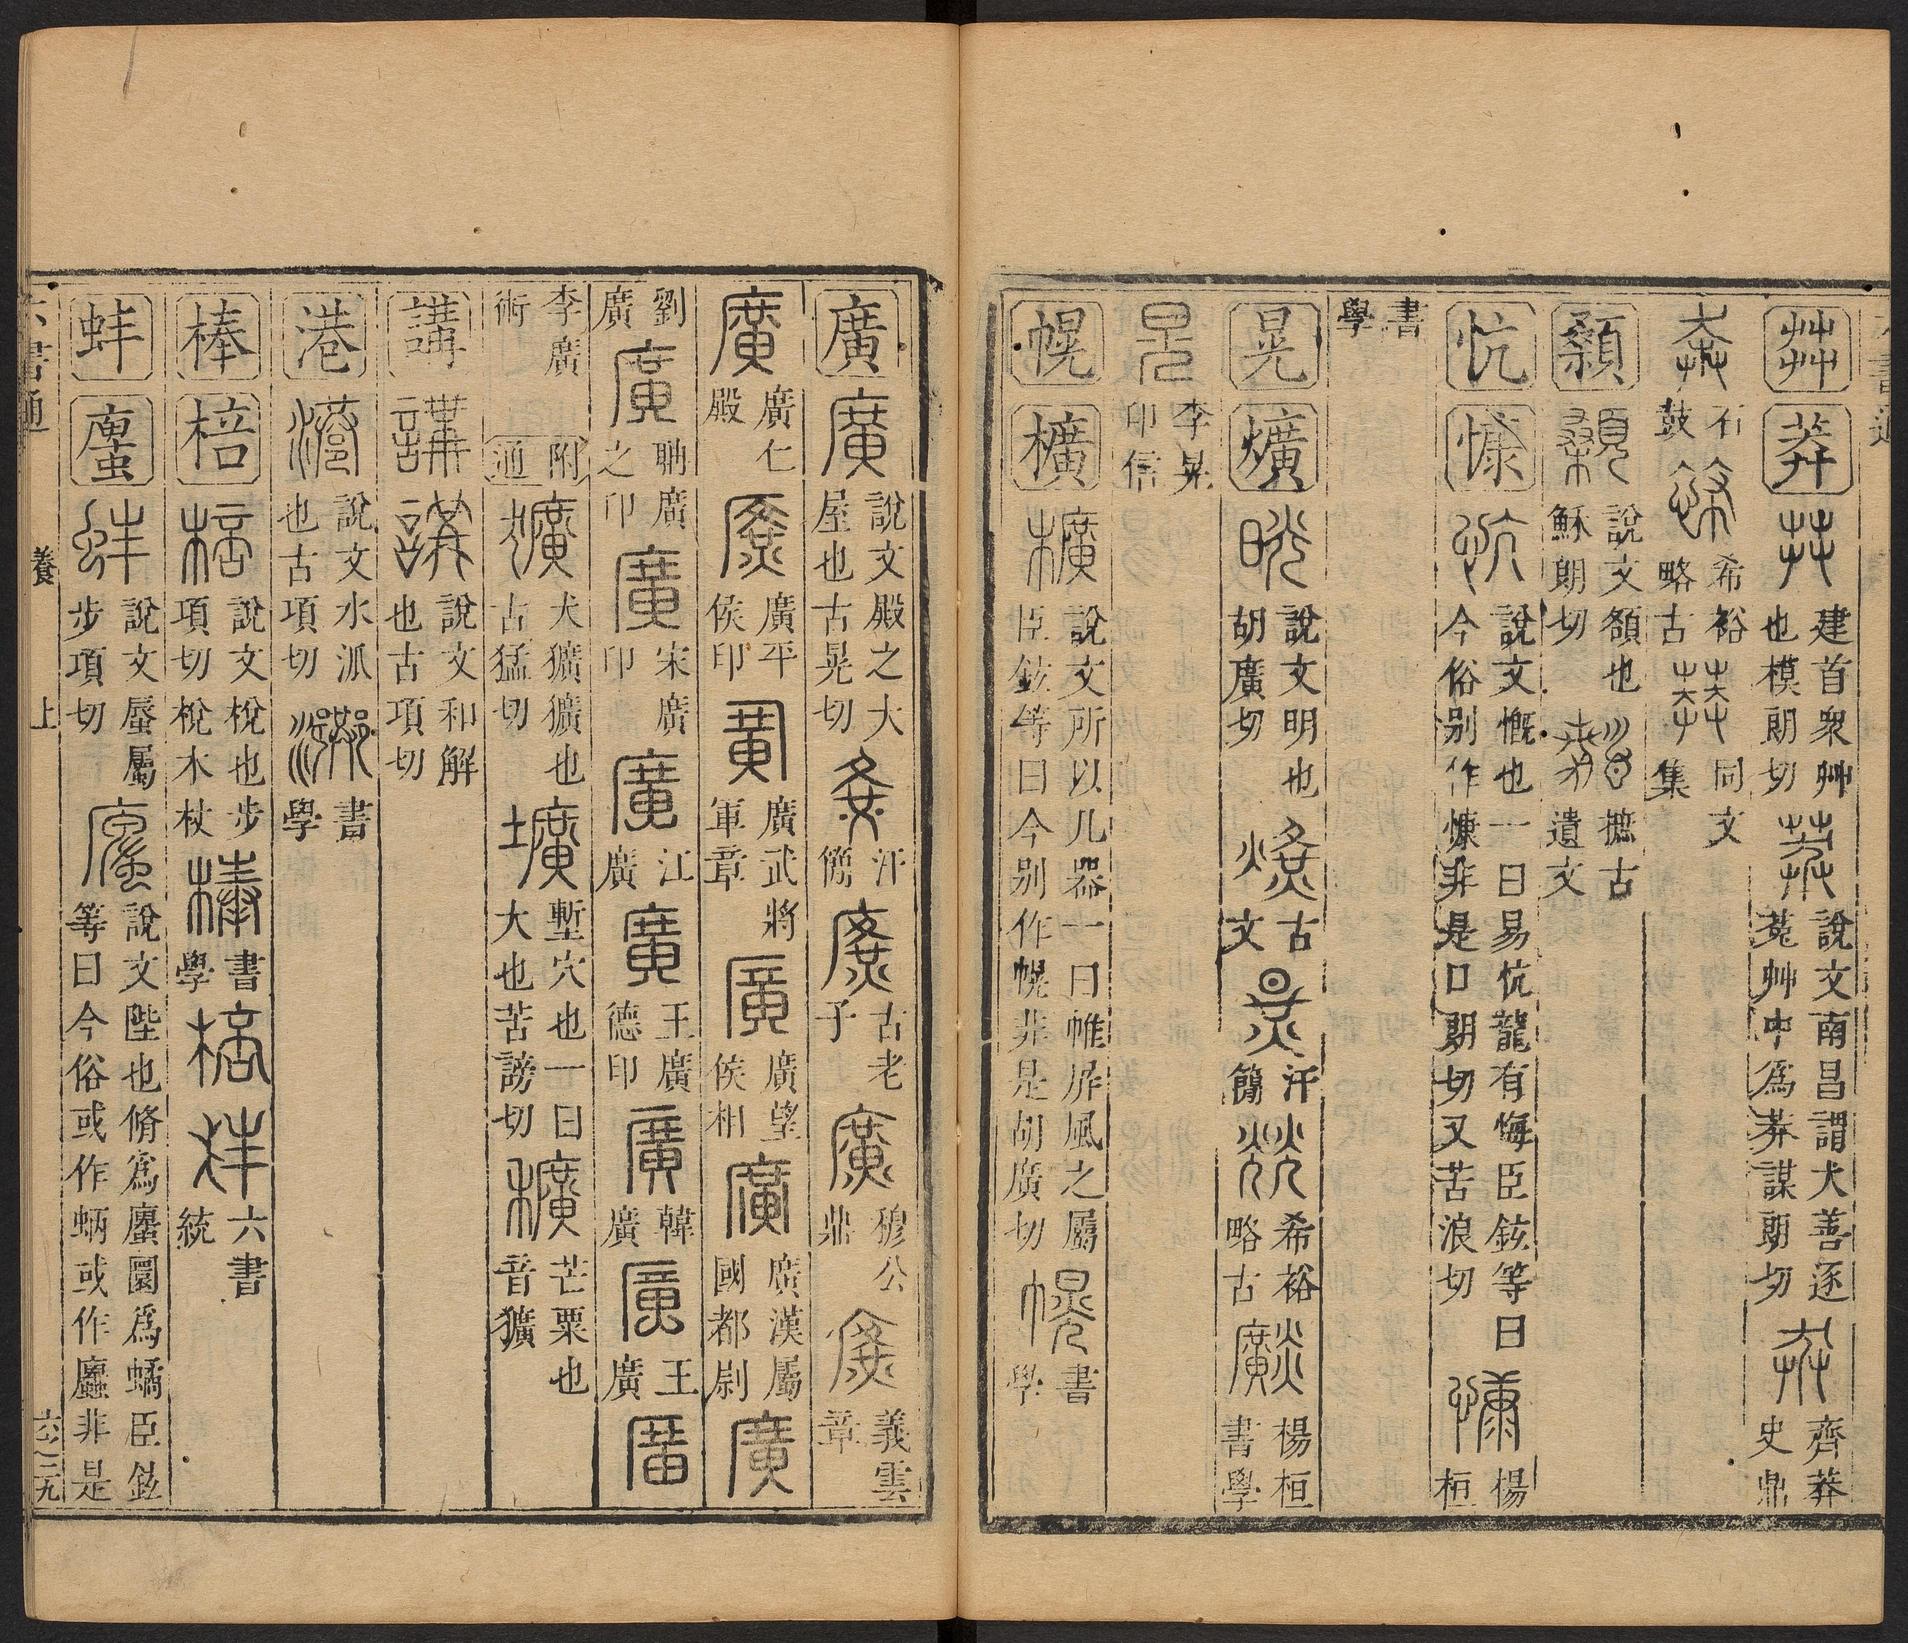 茻 莽 茻 建首眾艸也模朗切 莽 說文南昌謂犬善逐菟艸中爲莽謀朗切 莽 齊莽史鼎
莽 石鼓 希裕略古 莽 同文集
顙 顙 說文額也穌朗切 摭古遺文
忼 慷 忼 說文慨也一曰易忼龍有悔臣鉉等曰今俗别作慷非是口朗切又苦浪切 慷 楊桓
書學
晃 爌 晄 說文明也胡廣切 古文 汗簡 希裕略古 爌 楊桓書學
晃 李晃印信
幌 櫎 櫎 說文所以几器一曰帷屏風之屬臣鉉等曰今别作幌非是胡廣切 幌 書學
廣 廣 說文殿之大屋也古晃切 汗簡 古老子 廣 穆公鼎 義雲章
廣 廣仁殿 廣平侯印 廣武將軍章 廣 廣望侯相 廣 廣漢屬國都尉 廣
劉廣 廣 聃廣之印 廣 宋廣印 廣 江廣 廣 王廣德印 廣 韓廣 廣 王廣
李廣術 附通 獷 犬獷獷也古猛切 壙 塹穴也一曰大也苦謗切 穬 芒粟也音獷
講 講 講 說文和解也古項切
港 港 說文水派也古項切 書學
棒 棓 棓 說文梲也步項切梲木杖 棒 書學 棓 六書統
蚌 蜯 說文蜃屬步項切 說文陛也脩爲蠯圜爲蠇臣鉉等曰今俗或作蛃或作蠯非是
六書通 養 上 六之二九